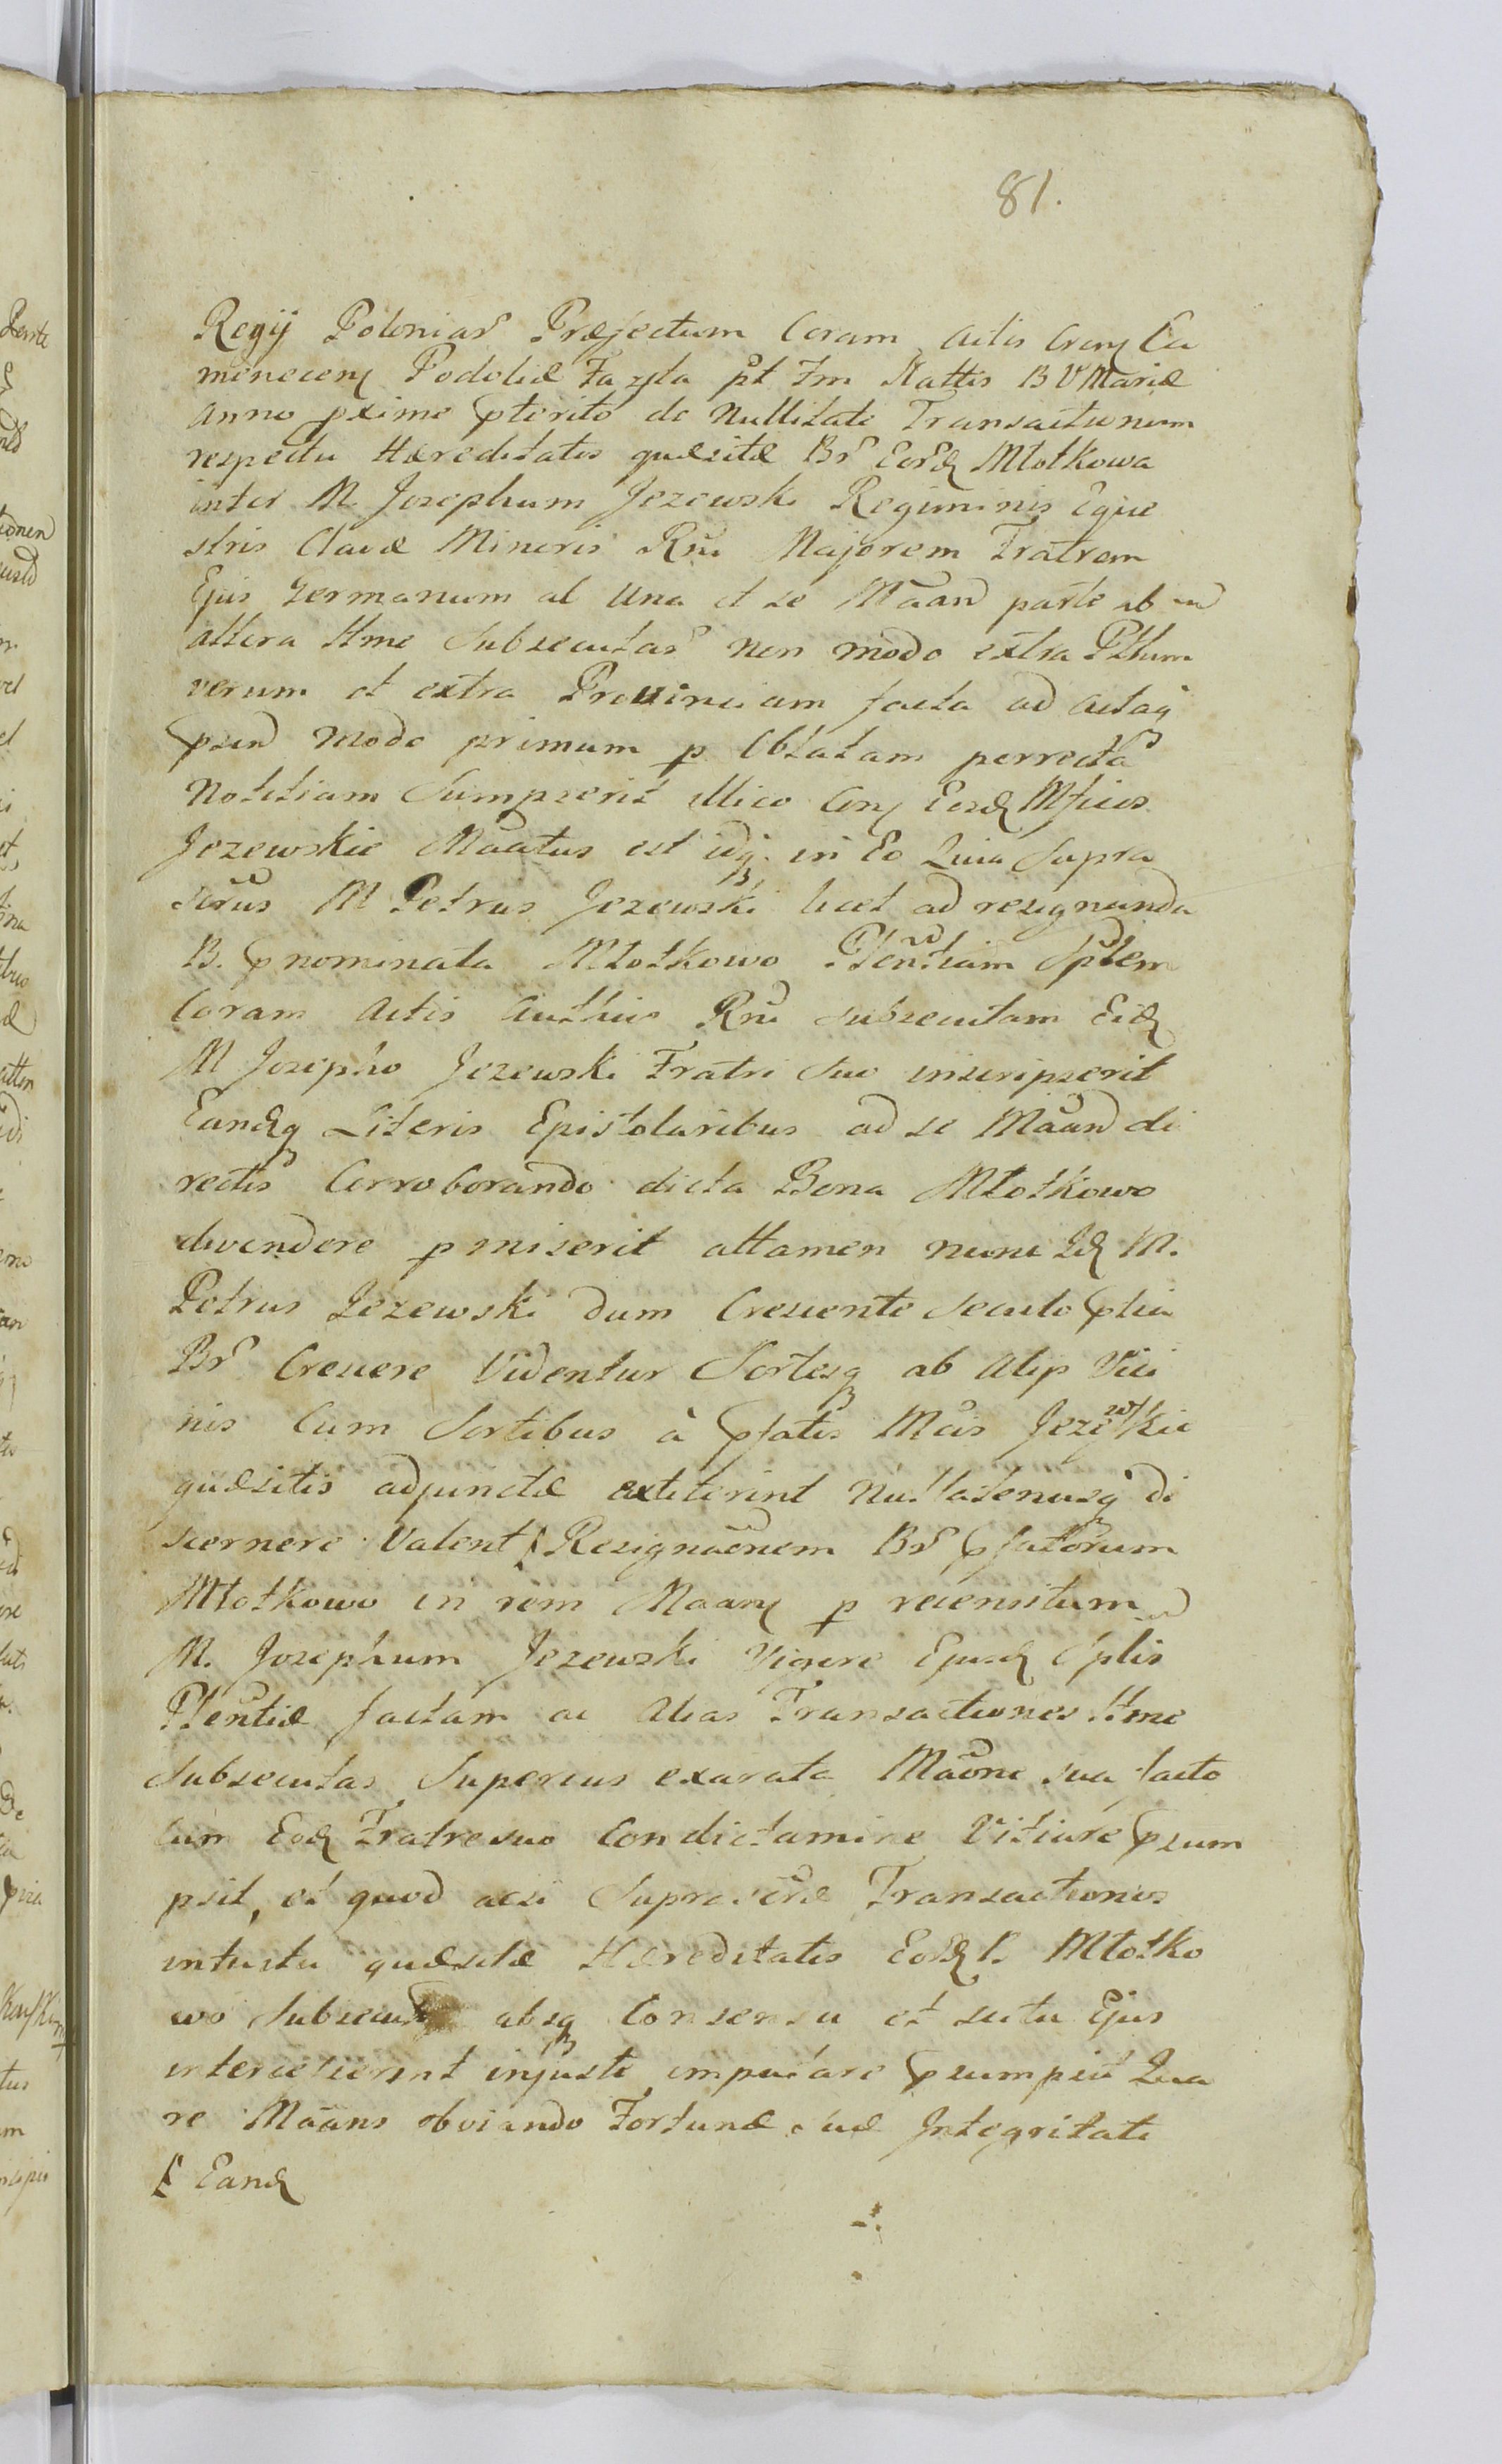 81.
Regÿ Poloniar Præfectum Coram Actis Cren Ca
menecen Podoliæ Fa pt Fm Nattis B V Mariæ
anno pxime pterito de Nullitate Transactionum
respectu Hæreditatis quæsitæ Br Eord Młotkowa
inter M. Josephum Jezewski Regiminis Eque
stris Clavæ Minoris Rni Majorem Fratrem
Ejus germanum ab Una et se Maand parte ab
altera Hme Subsecutar non modo extra Pttum
verum et extra Provinciam facta ad Actaq
psend modo primum p Oblatam perrecta
Notitiam Sumpserit illico Con Eosd Mficos
Jezewskie Maatus est idq in Eo Quia Supra
scrus M Petrus Jezewski licet ad resignanda
B. pnominata Młotkowo Plentiam Sptem
Coram Actis Authius Rni subsecutam Eid
M Josepho Jezewski Fratri Suo inscripserit
Eandq Literis Epistolaribus ad se Maand di
rectis Corroborando dicta Bona Młotkowo
divendere pmiserit attamen nunc Id M.
Petrus Jezewski dum Crescente Seculo ptia
Br Crescere Videntur Sortesq ab Alys Vici
nis Cum Sortibus à pfatis Mcis Jezewskie
quæsitis adjunctæ extiterint Nullatenusq di
scernere Valent Resignaonem Br pfatorum
Młotkowo in rem Maan p recensitum
M. Josephum Jezewski Vigore Ejusd Sptis
Plentiæ factam ac Alias Transactiones Hme
Subsecutas Superius exarata Maone sua facto
Cum Eod Fratre suo Condictamine Vitiare psum
psit, et quod acsi Suprascræ Transactiones
intuitu quæsitæ Hæreditatis Eord B. Młotko
wo Subsecut absq Consensu et scitu Ejus
intercesserint injuste imputare psumpsit Qua
re Maans obviando Fortunæ Suæ Integritati
Eand